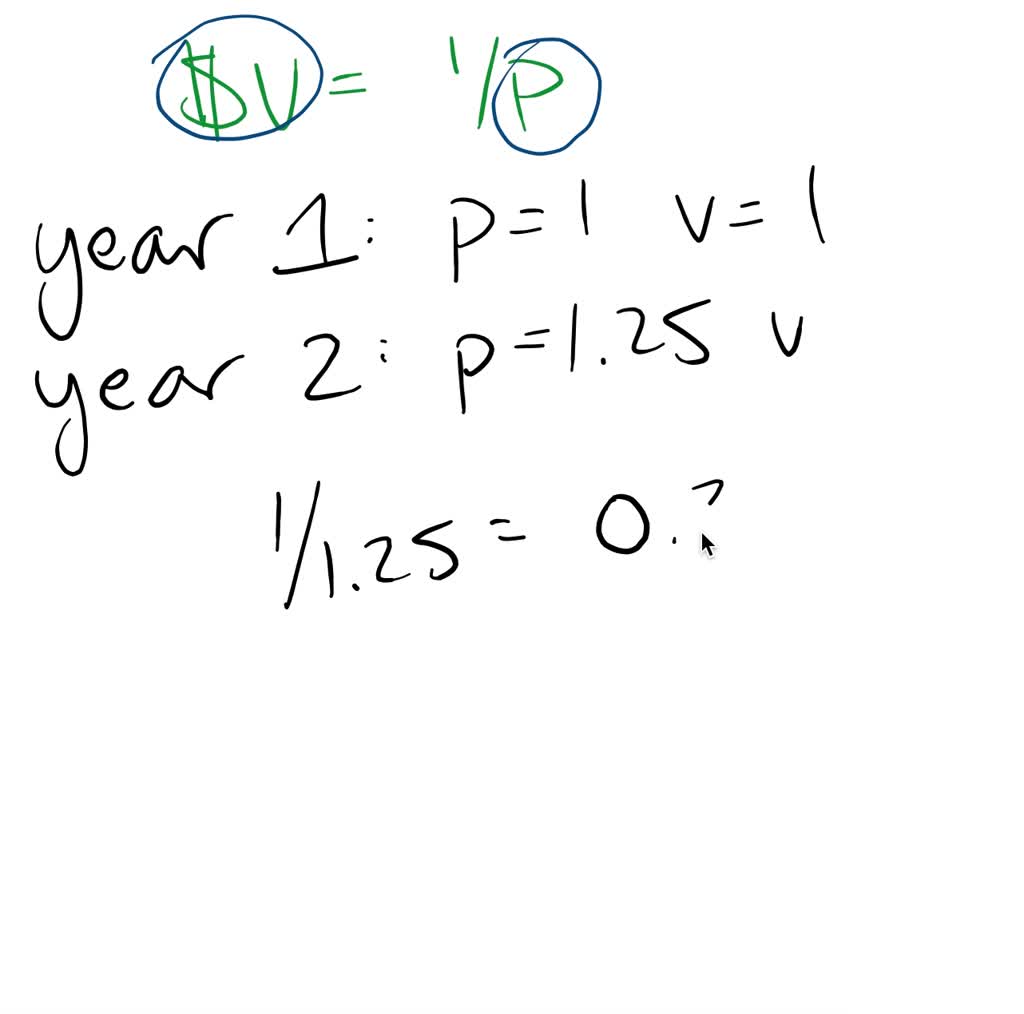 $V = 1/P
year 1: p=1 v=1
year 2: p=1.25 v
1/1.25 = 0.